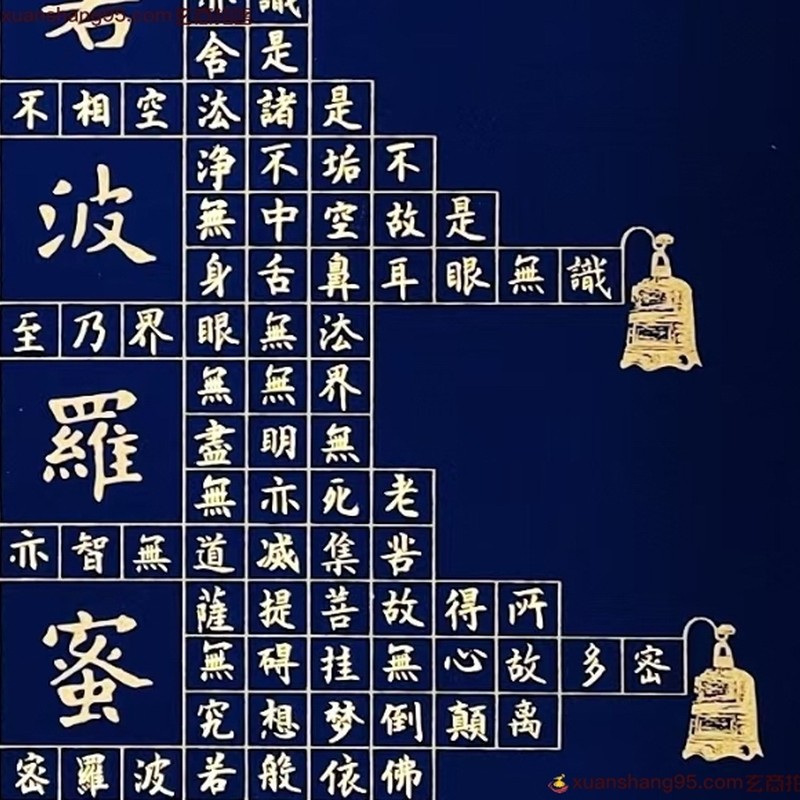 xuanshang95.com
若
識亦
是舍
是諸法空相不
波
不垢不浄
是故空中無
識無眼耳鼻舌身
法無眼界乃至
羅
界無無
無明盡
老死亦無
苦集滅道無智亦
蜜
所得故菩提薩
密多故心無挂碍無
离顛倒梦想究
佛依般若波羅密
xuanshang95.com玄商